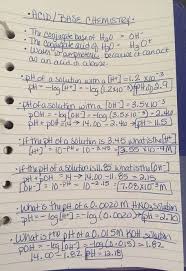 ACID/BASE CHEMISTRY:
• The conjugate base of H₂O = OH⁻
• The conjugate acid of H₂O = H₃O⁺
• Water is amphoteric because it can act
as an acid or a base.
• pH of a solution with a [H⁺] = 1.2 x 10⁻³
pH = -log[H⁺] = -log(1.2x10⁻³) pH = 2.9
• pH of a solution with a [OH⁻] = 3.5x10⁻³
pOH = -log[OH⁻] = -log(3.5x10⁻³) = 2.46
pH + pOH = 14 → 14.00 - 2.46 = pH = 11.5
• If the pH of a solution is 3.45 what is the [H⁺]
[H⁺] = 10^-pH = 10^-3.45 = 3.55 x10⁻⁴ M
• If the pH of a solution is 11.85 what is the [OH⁻]
pOH = 14 - pH → 14.00 - 11.85 = 2.15
[OH⁻] = 10^-pOH = 10^-2.15 = 7.08x10⁻³ M
• What is the pH of a 0.0020 M HNO₃ solution
pH = -log[H⁺] = -log(0.0020) → pH = 2.70
• What is the pH of a 0.015M KOH solution
pOH = -log[OH⁻] = -log(0.015) = 1.82
14.00 - 1.82 = 12.18